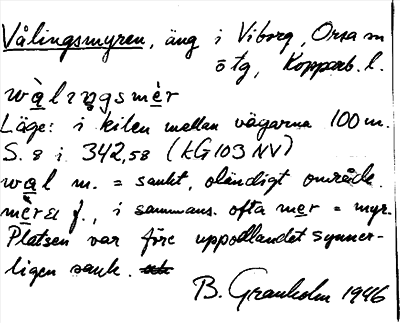 Vålingsmyren, äng i Viborg, Orsa sn
ö tg, Kopparb. l.
wàlıŋgsmèr
Läge: i kilen mellan vägarna 100 m.
S. 8 i 342,58 (KG103 NV)
wal m. = sankt, oländigt område.
mèra f., i sammans. ofta mer = myr.
Platsen var före uppodlandet synner-
ligen sank.
B. Granholm 1946